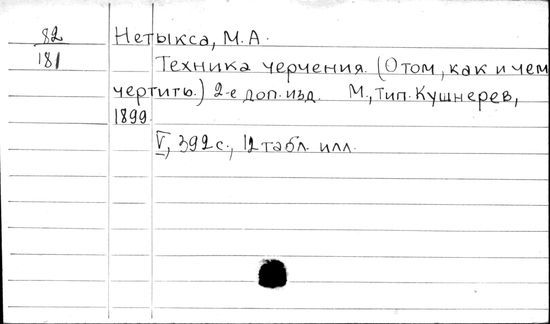 82 Нетыкса, М.А.
181 Техника черчения. (О том, как и чем
чертить.) 2-е доп. изд. М., тип. Кушнерев,
1899.
V, 392 с., 12 табл. илл.